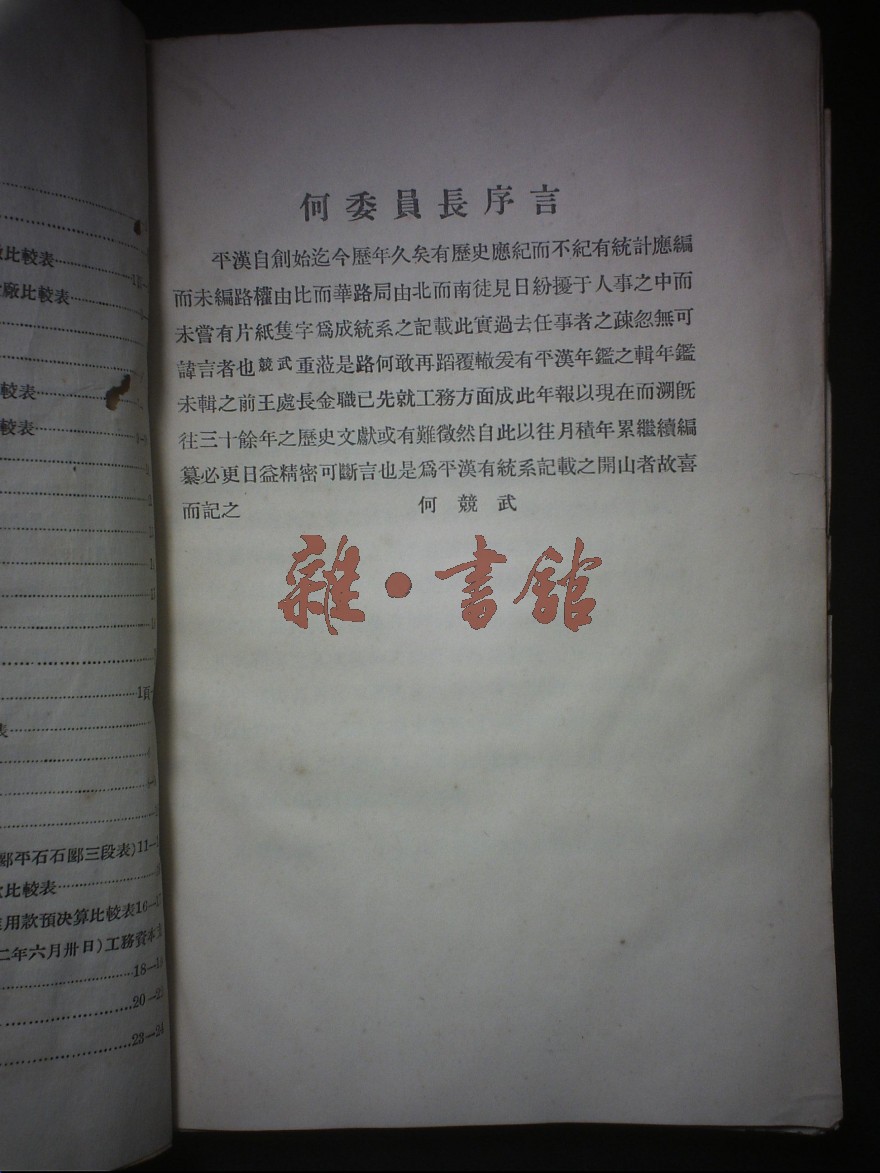 比較表
廠比較表
較表
較表
1頁
表
郾平石石郾三段表)11—
比較表
用款預决算比較表16—17
二年六月卅日)工務資本
18—
20—
23—24
何委員長序言
平漢自創始迄今歷年久矣有歷史應紀而不紀有統計應編
而未編路權由比而華路局由北而南徒見日紛擾于人事之中而
未嘗有片紙隻字爲成統系之記載此實過去任事者之疎忽無可
諱言者也競武重蒞是路何敢再蹈覆轍爰有平漢年鑑之輯年鑑
未輯之前王處長金職已先就工務方面成此年報以現在而溯既
往三十餘年之歷史文獻或有難徵然自此以往月積年累繼續編
纂必更日益精密可斷言也是爲平漢有統系記載之開山者故喜
而記之 何競武
雜·書館